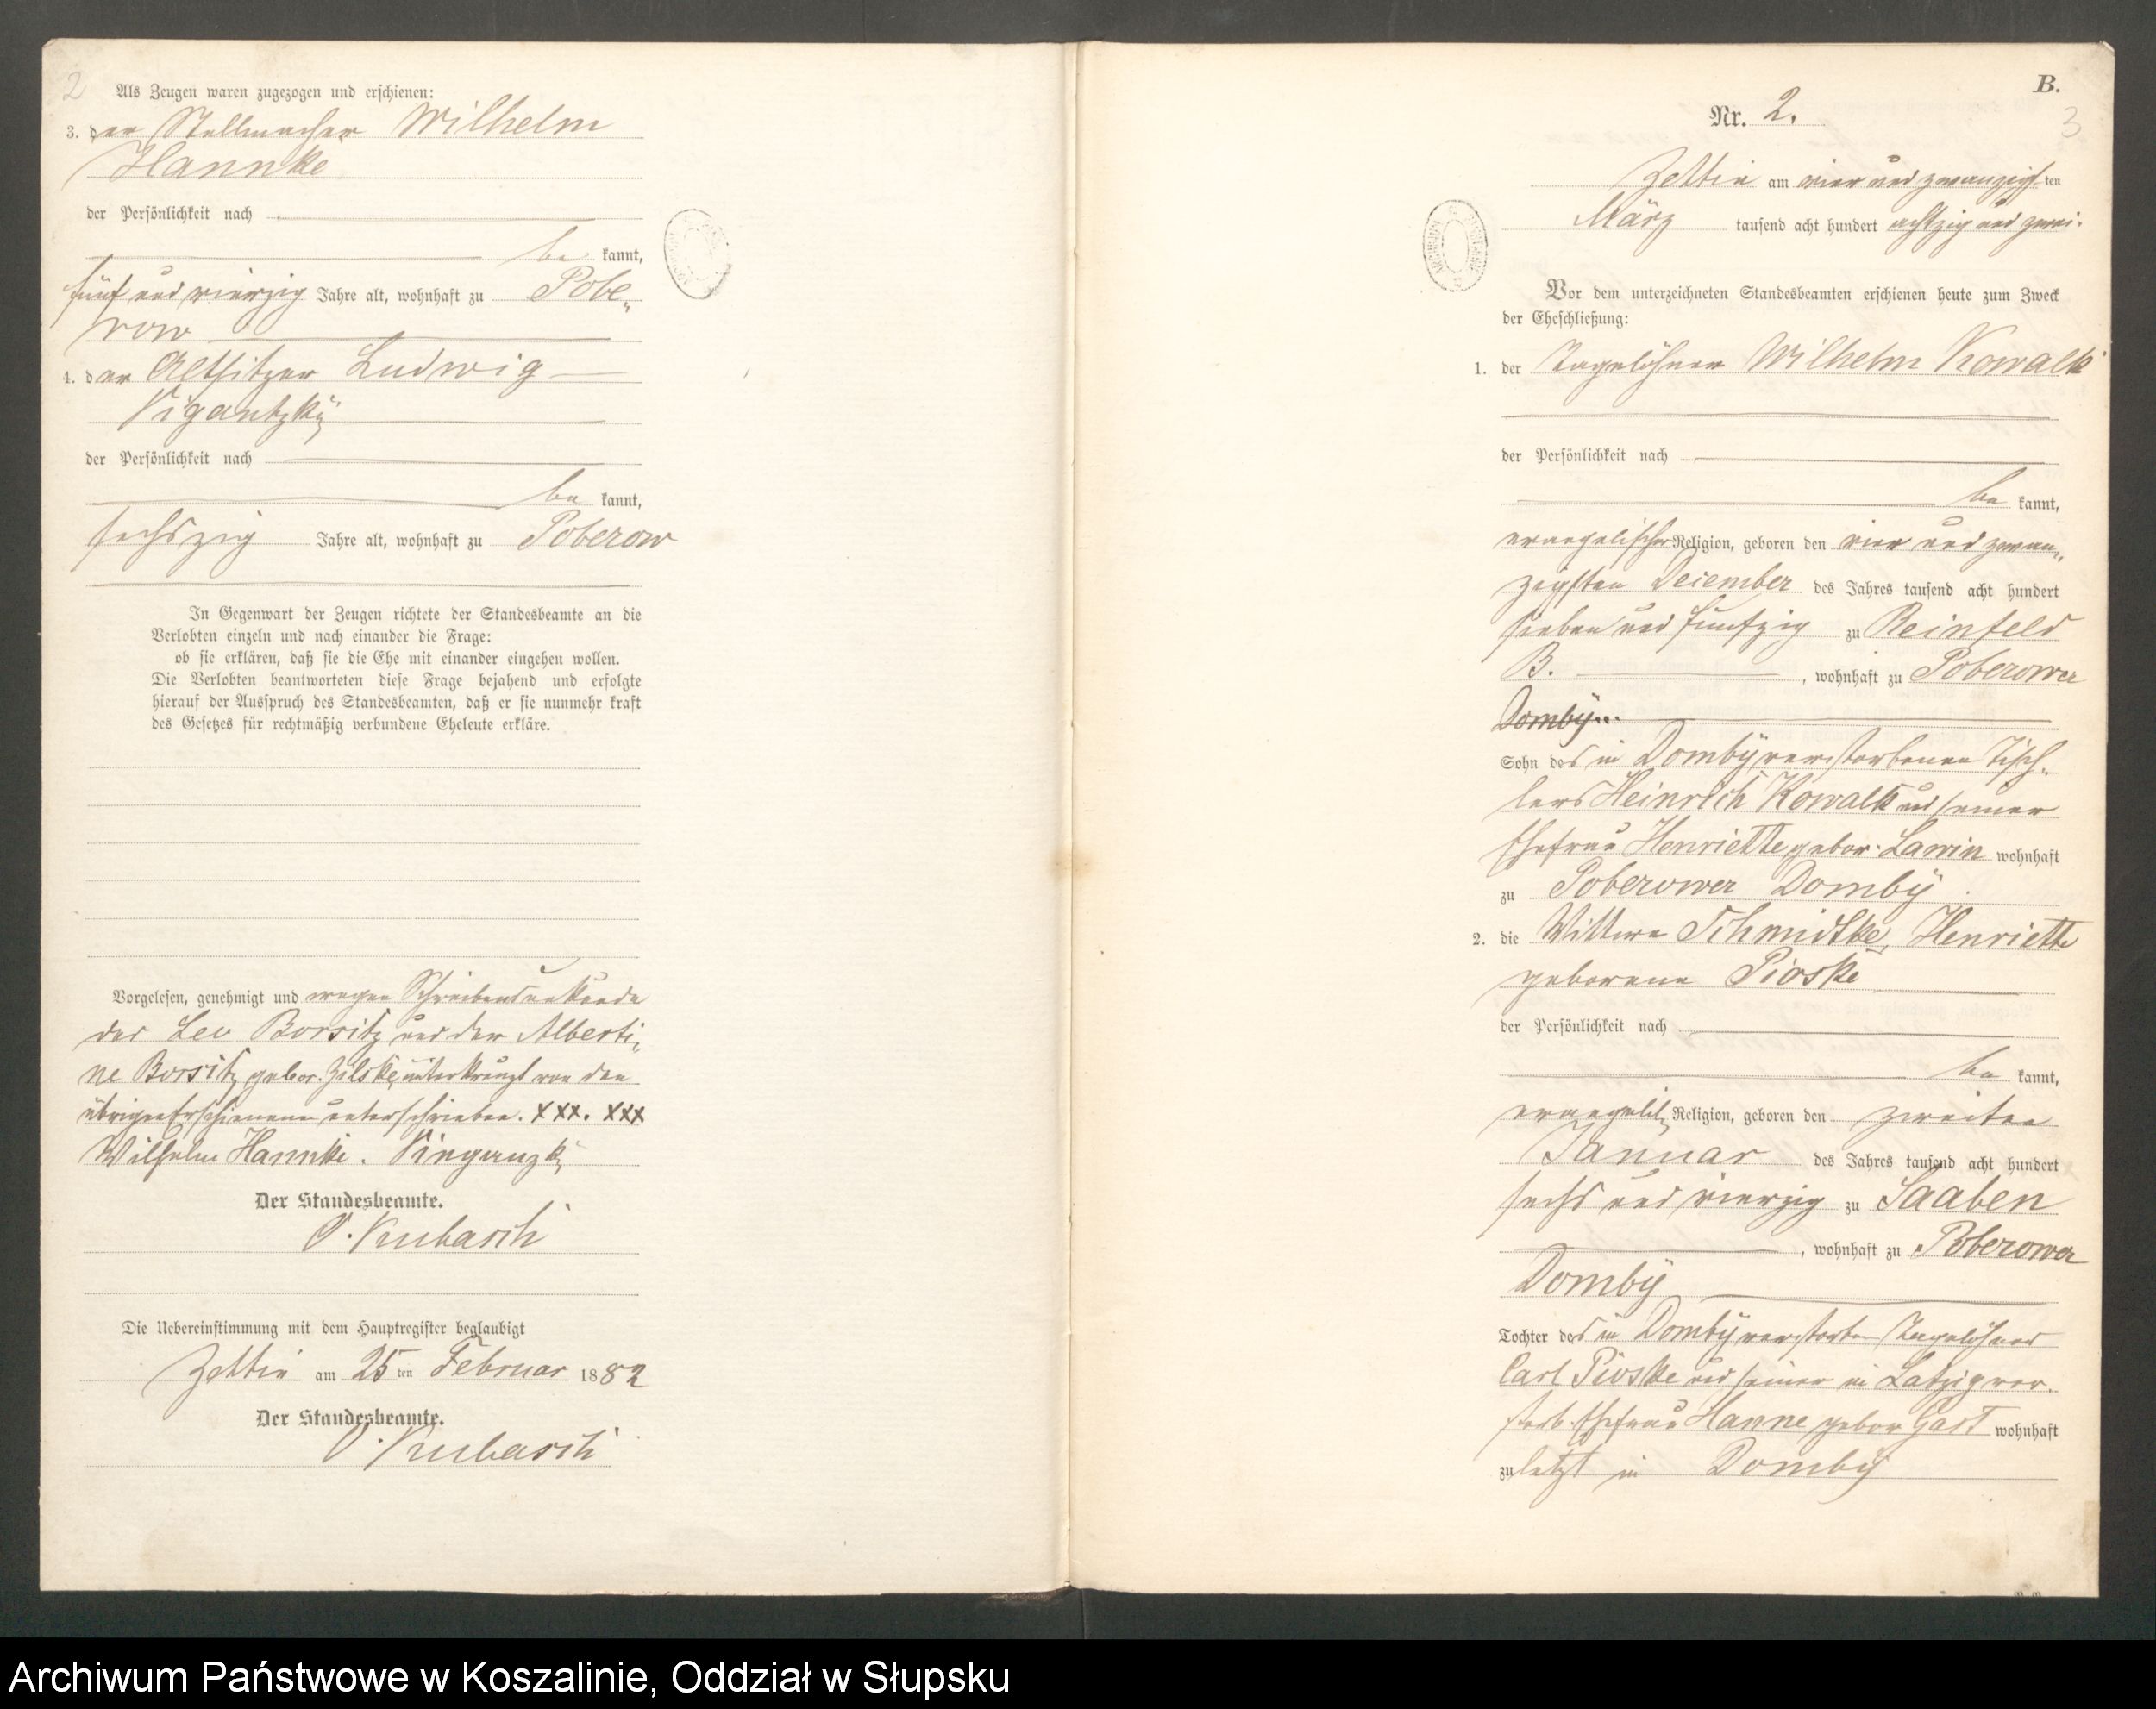 2
Als Zeugen waren zugezogen und erschienen:
3. der Stellmacher Wilhelm
Hannke
der Persönlichkeit nach
be kannt,
fünf und vierzig Jahre alt, wohnhaft zu Pobe„
row
4. der Altsitzer Ludwig
Vigantzkÿ
der Persönlichkeit nach
be kannt,
sechszig Jahre alt, wohnhaft zu Poberow
In Gegenwart der Zeugen richtete der Standesbeamte an die
Verlobten einzeln und nach einander die Frage:
ob sie erklären, daß sie die Ehe mit einander eingehen wollen.
Die Verlobten beantworteten diese Frage bejahend und erfolgte
hierauf der Ausspruch des Standesbeamten, daß er sie nunmehr kraft
des Gesetzes für rechtmäßig verbundene Eheleute erkläre.
Vorgelesen, genehmigt und wegen Schreibensunkunde
des Leo Borsitz und der Alberti„
ne Borsitz gebor. unterkreuzt von den
übrigen Erschienenen unterschrieben. XXX. XXX
Wilhelm Hannke.
Der Standesbeamte.
O. Kubasch
Die Uebereinstimmung mit dem Hauptregister beglaubigt
Zettin am 25 ten Februar 1882
Der Standesbeamte.
O. Kubasch
B.
Nr. 2.
3
Zettin am vier und zwanzigsten
März tausend acht hundert achtzig und zwei.
Vor dem unterzeichneten Standesbeamten erschienen heute zum Zweck
der Eheschließung:
1. der Tagelöhner Wilhelm Kowalk
der Persönlichkeit nach
be kannt,
evangelischer Religion, geboren den vier und zwan„
zigsten December des Jahres tausend acht hundert
sieben und fünfzig zu Reinfeld
B. , wohnhaft zu Poberower
Dombÿ
Sohn des in Dombÿ verstorbenen Tisch„
lers Heinrich Kowalk und seiner
Ehefrau Henriette gebor. Lawin wohnhaft
zu Poberower Dombÿ
2. die Wittwe Schmidtke, Henriette
geborene Pioske
der Persönlichkeit nach
be kannt,
evangelisch Religion, geboren den zweiten
Januar des Jahres tausend acht hundert
sechs und vierzig zu Saaben
, wohnhaft zu Poberower
Dombÿ
Tochter des in Dombÿ verstorben Tagelöhner
Carl Pioske und seiner in Latzig ver„
storb. Ehefrau Hanne gebor Gast wohnhaft
zuletzt in Dombÿ
Archiwum Państwowe w Koszalinie, Oddział w Słupsku